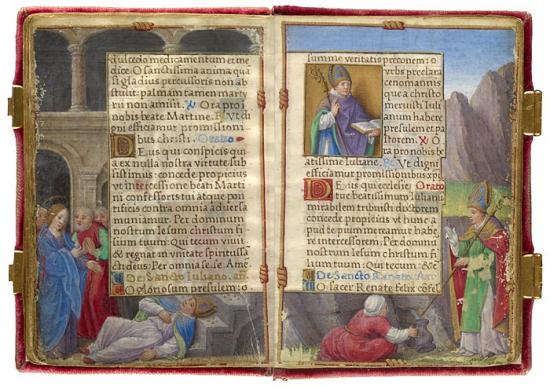 dulcedo medicamentum et me
dice. O sanctissima anima qua
si gladius percussoris non ab
stulit: palmam tamen marty
rii non amisit. V Ora pro
nobis beate Martine. R Ut di
gni efficiamur promissioni
bus christi. Oratio
Deus qui conspicis qui
a ex nulla nostra virtute sub
sistimus: concede propicius
ut intercessione beati Marti
ni confessoris tui atque pon
tificis contra omnia adversa
muniamur. Per dominum
nostrum Iesum christum fi
lium tuum: Qui tecum vivit
& regnat in unitate spiritussā
cti deus: Per omnia s. se. Amē
De Sancto Iuliano. an.
O gloriosum presulem: o
summe veritatis preconem: o
urbs preclara
cenomannis
que a christo
meruisti Iuli
anum habere
presulem et pa
storem. V O
ra pro nobis be
atissime Iuliane. R Ut digni
efficiamur promissionibus xp̄i
Deus qui ecclesie Oratio
tue beatissimum Iulianū
mirabilem tribuisti doctorem
concede propicius ut hunc a
pud te pium mereamur habe
re intercessorem. Per dominū
nostrum Iesum christum fi
lium tuum: Qui tecum. &c
De Sancto Renato. An.
O sacer Renate felix cōfes.